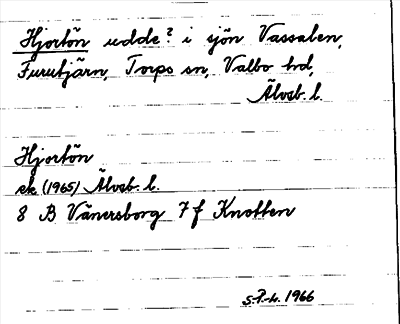 Hjortön udde? i sjön Vassalen,
Furutjärn, Torps sn, Valbo hd,
Älvsb. l.
Hjortön
ek (1965) Älvsb. l.
8 B Vänersborg 7 f Knotten
1966